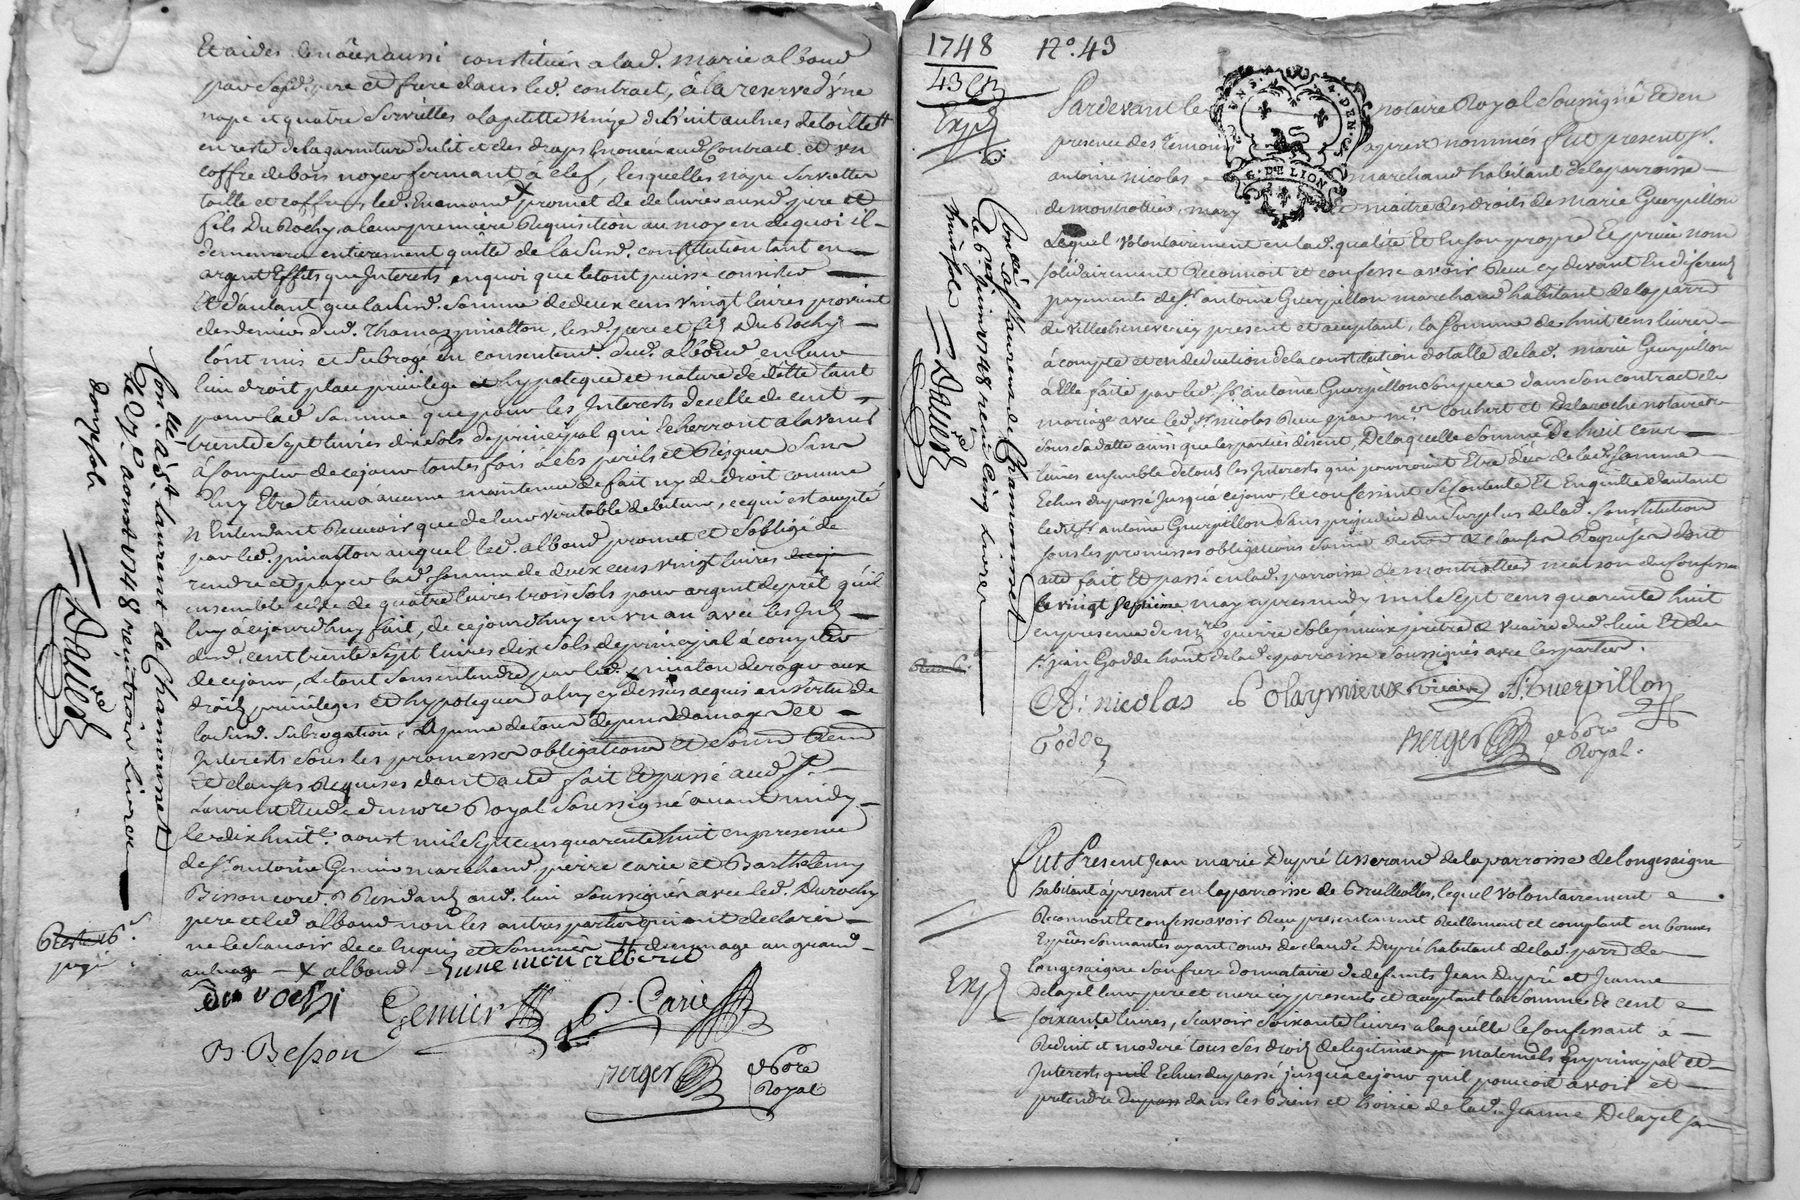 Et aides Constitués a lad. marie alboud
par sesd. pere et frere dans led. contract, à la reserve d'une
nape et quatre Serviettes a la petitte Venize de huit aulnes de toille #
en reste de la garniture du lit et des draps Enoncé aud. Contract et un
Coffre de bois noyer fermant à clef, lesquelles nape Serviettes
toille et coffre led. promet de delivrer ausd. pere et
fils DuRochy, a leur premiere Requisition au moyen de quoi il
demeurera entierement quitte de la susd. constitution tant en
argent Effets que Interests en quoi que le tout puisse consister
Et d'autant que lasusd. Somme de deux cens vingt livres provient
des deniers dud. Thomas pinatton, lesd. pere et fils DuRochy
l'ont mis et Subrogé du consentemt. dud. alboud en leur
lieu droit place privilege et hypoteque et nature de dette tant
pour lad. Somme que pour les Interests de celle de cent
trente Sept livres dix sols de principal qui Echerront a lavenir
à Compter de cejour toutes fois à ses perils et Risques Sans
luy Etre tenu à aucune maintenue de fait ny de droit comme
N'Entendant Recevoir que de leur veritable debiteur, ce qui est accepté
par led. pinatton auquel led. alboud promet et s'obligé de
rendre et payer lad. somme de deux cens vingt livres
ensemble celle de quatre livres trois Sols pour argent de pret qu'il
luy à cejourdhuy fait, de cejourdhuy en un an avec les Int.
desd. cent trente Sept livres dix Sols de principal à compter
de cejour, Letout Sans entendre par led. pinaton deroger aux
droits privileges et hypoteques a luy cy dessus acquis en vertu de
lasusd. Subrogation, Apeine de tous depens domages et
Interests sous les promesses obligations et Soum. Renon.
et clauses Requises dont acte fait Et passé aud. St.
Laurent Etude du notre Royal Soussigné avant midy
le dix huit.e aoust mil Sept cens quarente huit en presence
de Sr. antoine Gemier marchand, pierre carie et Barthelemy
Bisson cord. Residants aud. lieu Soussignés avec led. Durochy
pere et led. alboud non les autres parties qui ont declaré
ne le Scavoir de ce Enquis et Sommés # du menage au grand
aulnage - X alboud -
du Rochi Gemier P. Carie
B. Besson
Berger nore Royal
Con.lé à St. Laurent de Chamousset
le 27e aoust 1748 recu trois Livres
douze sols
Dalled
1748 No. 43
43
Exp.
GEN. DE LION
Pardevant le notaire Royal Soussigné Et en
presence des temoins apres nommés fut present Sr.
antoine nicolas marchand habitant de la parroisse
de montrottier, mary Et maitre des droits de marie Guerpillon
Lequel volontairement en lad. qualité Et En son propre Et privé nom
solidairement Reconnoit et confesse avoir Receu cy devant En diferents
payements de Sr. antoine Guerpillon marchand habitant de la parr.
de villechenève icy present et acceptant, la somme de huit cens livres
à compte et en deduction de la constitution dotalle de lad. marie Guerpillon
à Elle faite par led. Sr. antoine Guerpillon Son pere dans son contract de
mariage avec led. Sr. nicolas Receu par me. Couhert et Delaroche notaires
sous sa datte ainsi que les parties disent, De laquelle Somme De huit cens
livres ensemble de tous les Interests qui pourroient Etre deüs de lad. Somme
Echus du passé jusqu'à cejour, le confessant Se Contente Et En quitte d'autant
ledit Sr. antoine Guerpillon Sans prejudice du Surplus de lad. Constitution
sous les promesses obligations Soum. Renon. & clauses Requises dont
acte fait Et passé en lad. parroisse de montrottier maison du Confessant
le vingt Septième may apres midy mil Sept cens quarente huit
en presence de mre. pierre Soleymieux pretre & vicaire dud. lieu Et de
Sr. jean Godde hant. de lad. parroisse Soussignés avec les parties.
A. nicolas P Solaymieux vicaire A. Guerpillon
Godde
Berger nore Royal.
Con.lé à St. Laurens de Chamousset
le 6e juin 1748 recu cinq Livres
huit sols
Dalled
Fut Present Jean marie Dupré tisserand de la parroisse de longesaigne
habitant à present en la parroisse de Brullolles, lequel volontairement
Reconnoit Et confesse avoir Receu presentement Reellement et comptant en bonnes
Especes Sonnantes ayant cours de claude Dupré habitant de lad. parr. de
longesaigne Son frere donnataire de defunts Jean Dupré et Jeanne
Delayel leur pere et mere icy present et acceptant la Somme de cent
soixante livres, Scavoir Soixante livres a laquelle le Confessant à
Reduit et moderé tous Ses droits de legitime maternels En principal et
Interests Echus du passé jusqu'à cejour qu'il pouvoit avoir et
pretendre dans les Biens et hoirie de lad. Jeanne Delayel sa
Exp.